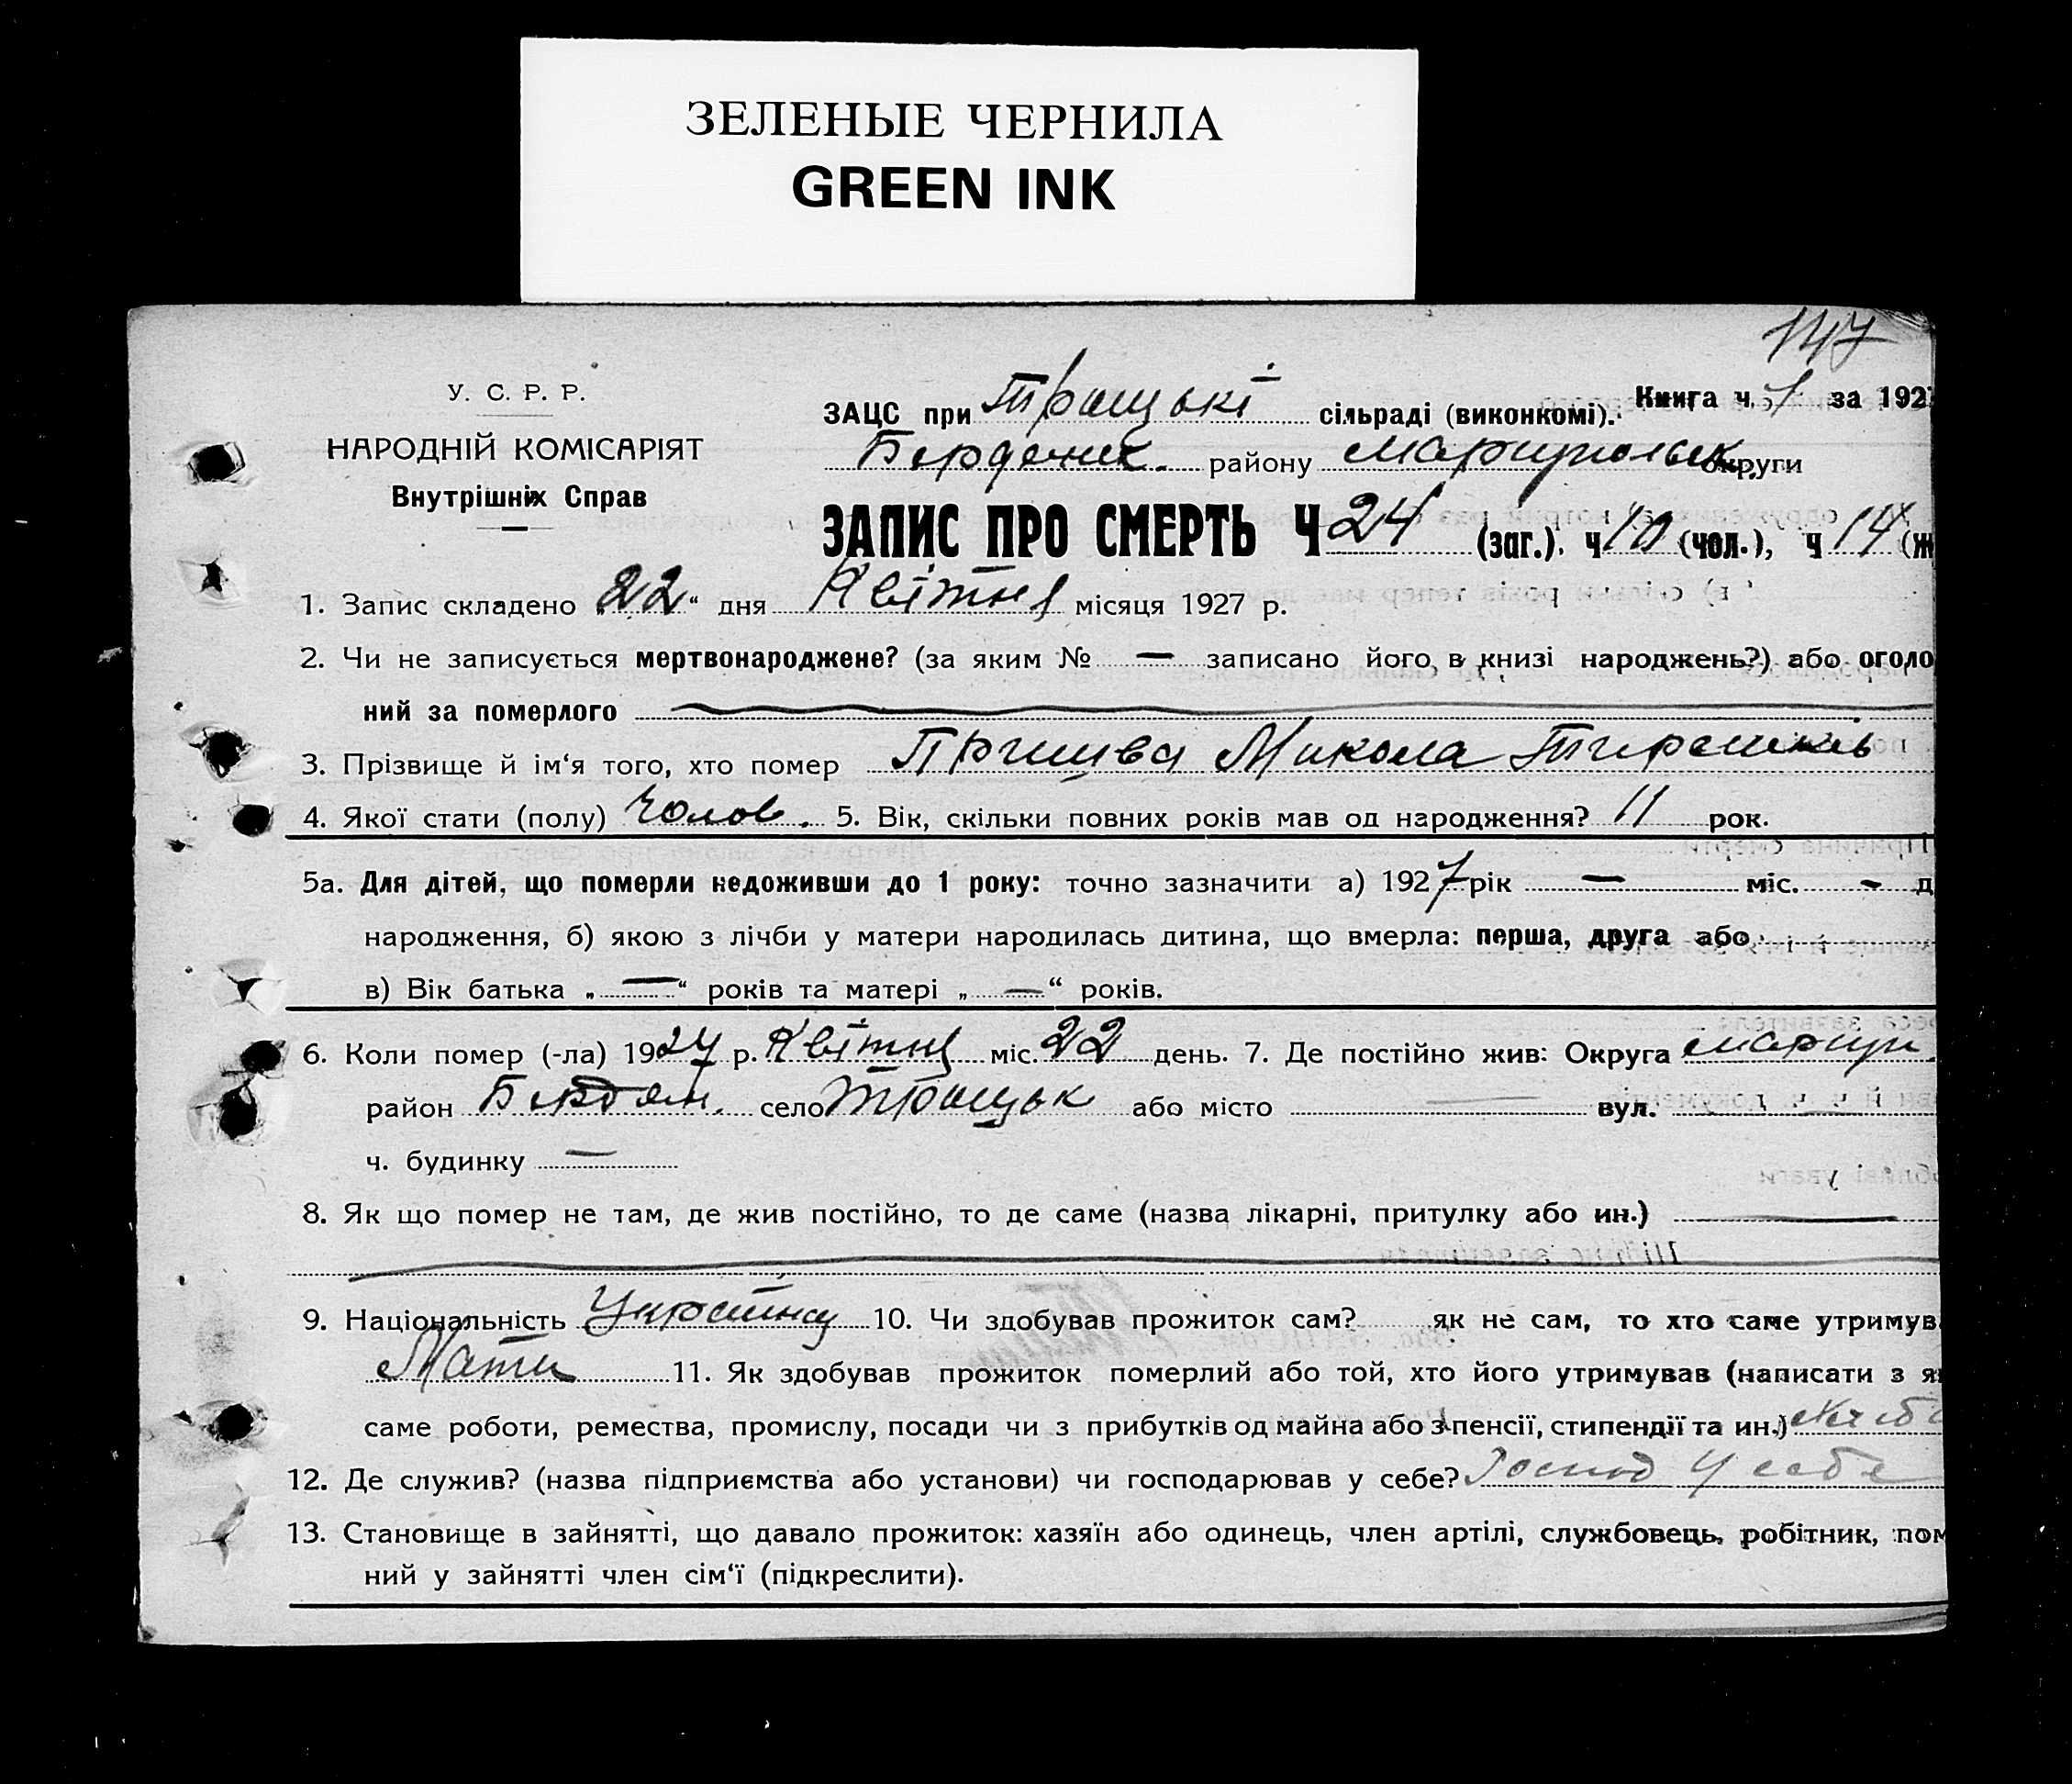 ЗЕЛЕНЫЕ ЧЕРНИЛА
GREEN INK
147
У. С. Р. Р.
НАРОДНІЙ КОМІСАРІЯТ
Внутрішніх Справ
ЗАЦС при Троцькі сільраді (виконкомі). Книга ч. 1 за 192
Бердянск. району Маріупольськ. округи
ЗАПИС ПРО СМЕРТЬ Ч 24 (заг.). ч 10 (чол.), ч 14 (ж
1. Запис складено „22“ дня Квітня місяця 1927 р.
2. Чи не записується мертвонароджене? (за яким № — записано його в книзі народжень?) або оголо
ний за померлого
3. Прізвище й ім‘я того, хто помер Микола
4. Якої стати (полу) Чолов. 5. Вік, скільки повних років мав од народження? 11 рок.
5а. Для дітей, що померли недоживши до 1 року: точно зазначити а) 1927 рік — міс. - д
народження, б) якою з лічби у матери народилась дитина, що вмерла: перша, друга або
в) Вік батька „ — “ років та матері „ — “ років.
6. Коли помер (-ла) 1927 р. Квітня міс. 22 день. 7. Де постійно жив: Округа Маріуп.
район Бердян. село Троцьк або місто — вул.
ч. будинку —
8. Як що помер не там, де жив постійно, то де саме (назва лікарні, притулку або ин.) —
9. Національність 10. Чи здобував прожиток сам? як не сам, то хто саме утримув
Мати 11. Як здобував прожиток померлий або той, хто його утримував (написати з я
саме роботи, ремества, промислу, посади чи з прибутків од майна або з пенсії, стипендії та ин.)
12. Де служив? (назва підприємства або установи) чи господарював у себе? Господ у себе
13. Становище в зайнятті, що давало прожиток: хазяїн або одинець, член артілі, службовець, робітник, пом
ний у зайнятті член сім‘ї (підкреслити).